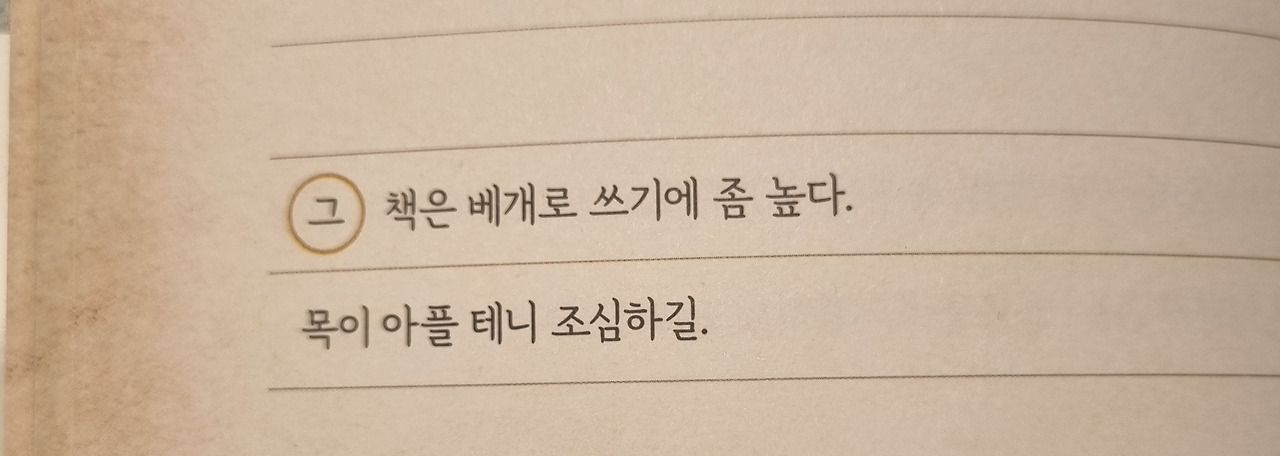 그 책은 베개로 쓰기에 좀 높다.
목이 아플 테니 조심하길.